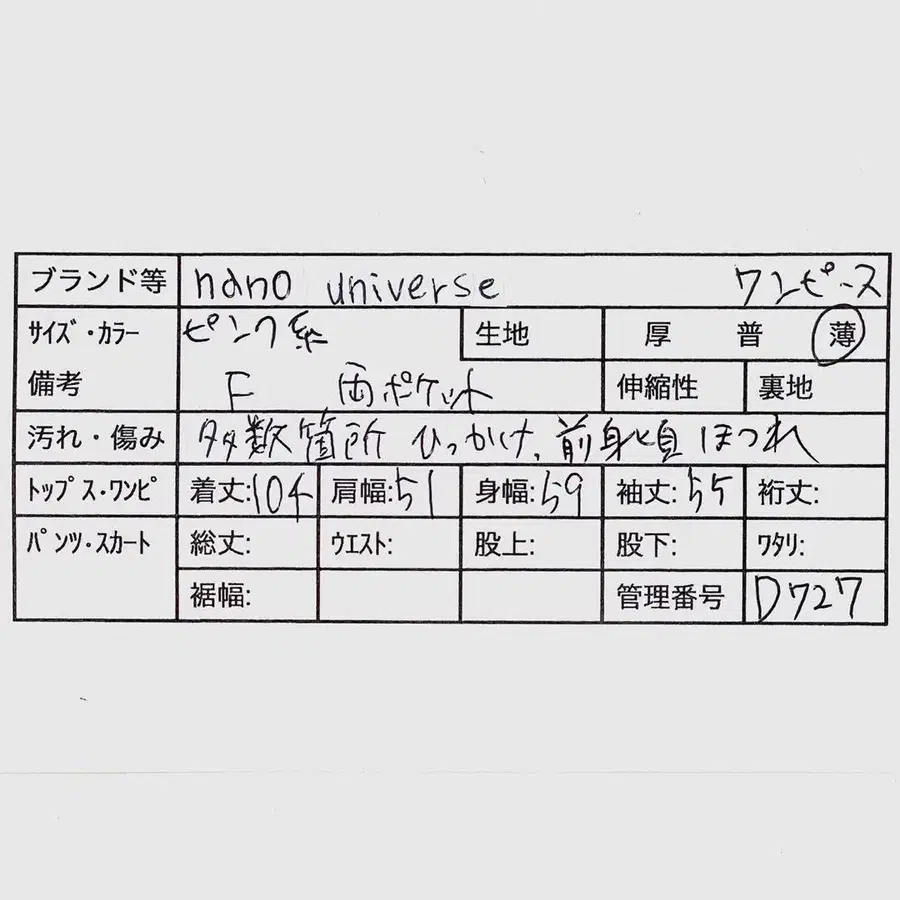 ブランド等 nano universe ワンピース
ｻｲｽﾞ・ｶﾗｰ ピンク系 生地 厚 普 薄
備考 F 両ポケット 伸縮性 裏地
汚れ・傷み 多数箇所 ひっかけ、前身頃ほつれ
ﾄｯﾌﾟｽ・ﾜﾝﾋﾟ 着丈:104 肩幅:51 身幅:59 袖丈:55 裄丈:
ﾊﾟﾝﾂ・ｽｶｰﾄ 総丈: ｳｴｽﾄ: 股上: 股下: ﾜﾀﾘ:
裾幅: 管理番号 D727